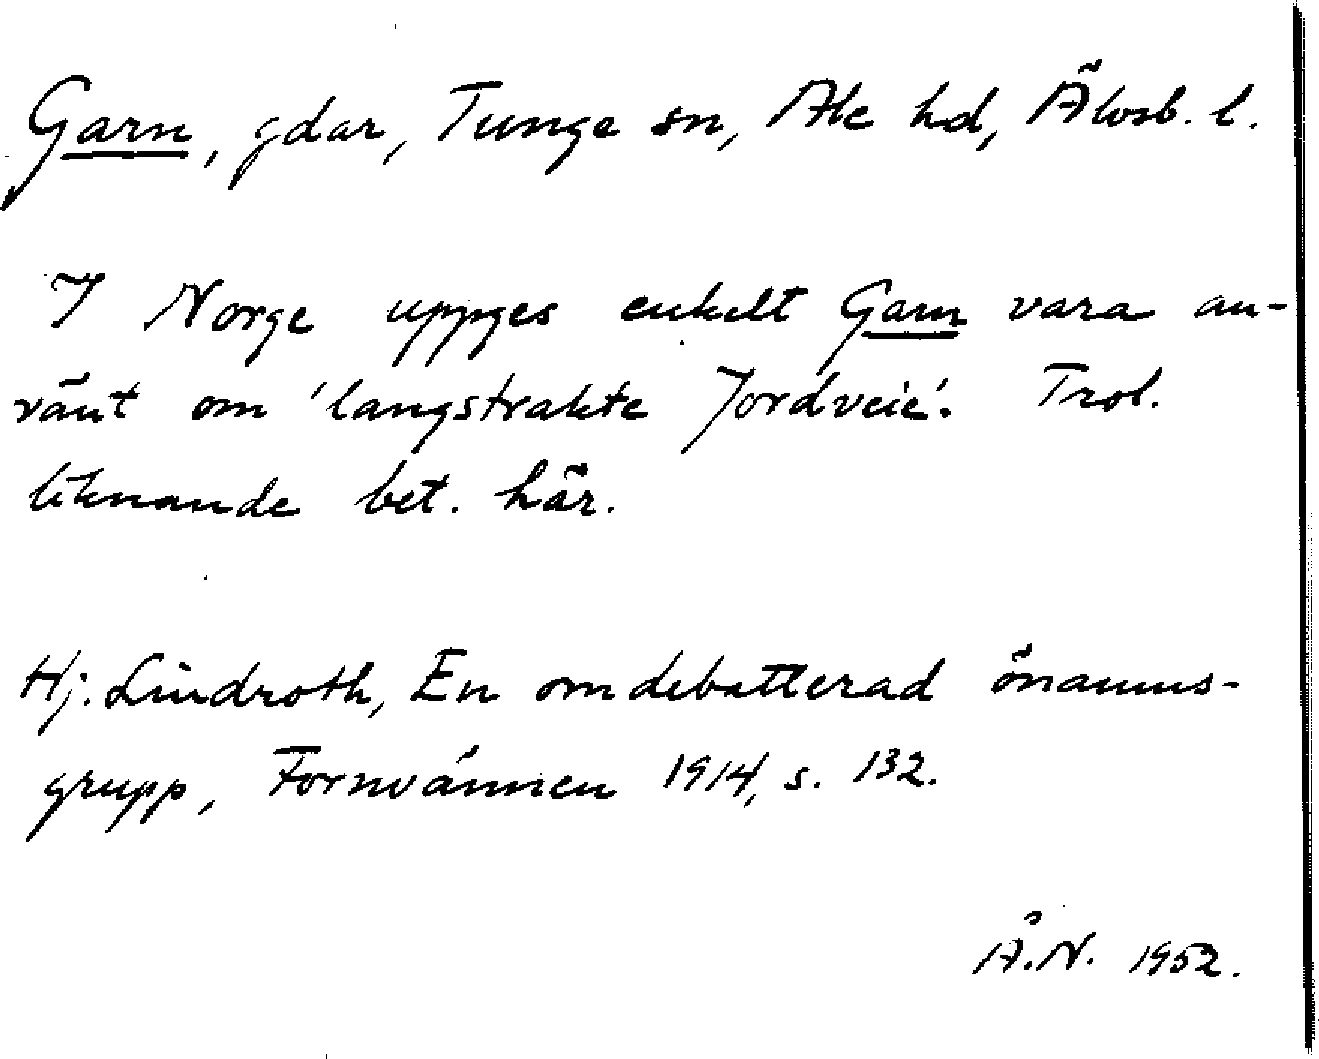 Garn, gdar, Tunge sn, Ale hd, Älvsb. l.
I Norge uppges enkelt Garn vara an-
vänt om 'langstrakte Jordveie'. Trol.
liknande bet. här.
Hj. Lindroth, En omdebatterad önamns-
grupp, Fornvännen 1914, s. 132.
Å.N. 1952.